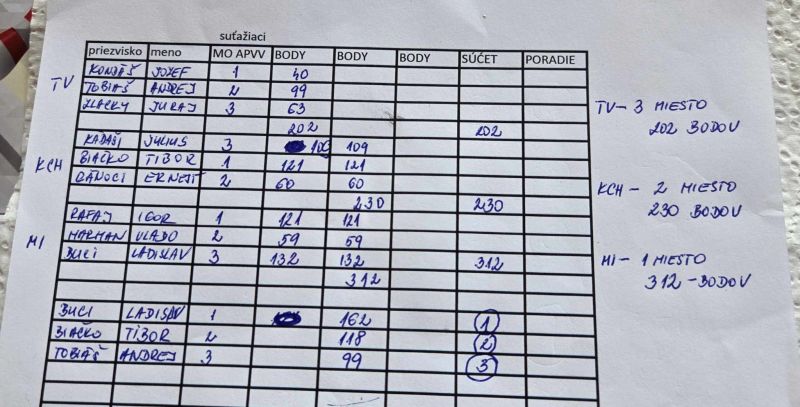 suťažiaci
priezvisko meno MO APVV BODY BODY BODY SÚČET PORADIE
TV KONDÁŠ JOZEF 1 40
TOBIÁŠ ANDREJ 2 99
ZLACKY JURAJ 3 63
202 202
TV - 3 MIESTO
202 BODOV
KADAŠI JULIUS 3 109 109
KCH BIAČKO TIBOR 1 121 121
DÁNOCI ERNEST 2 60 60
230 230
KCH - 2 MIESTO
230 BODOV
RAFAJ IGOR 1 121 121
MI HARMAN VLADO 2 59 59
BUCI LADISLAV 3 132 132 312
312
MI - 1 MIESTO
312 - BODOV
BUCI LADISLAV 1 162 1
BIAČKO TIBOR 2 118 2
TOBIÁŠ ANDREJ 3 99 3